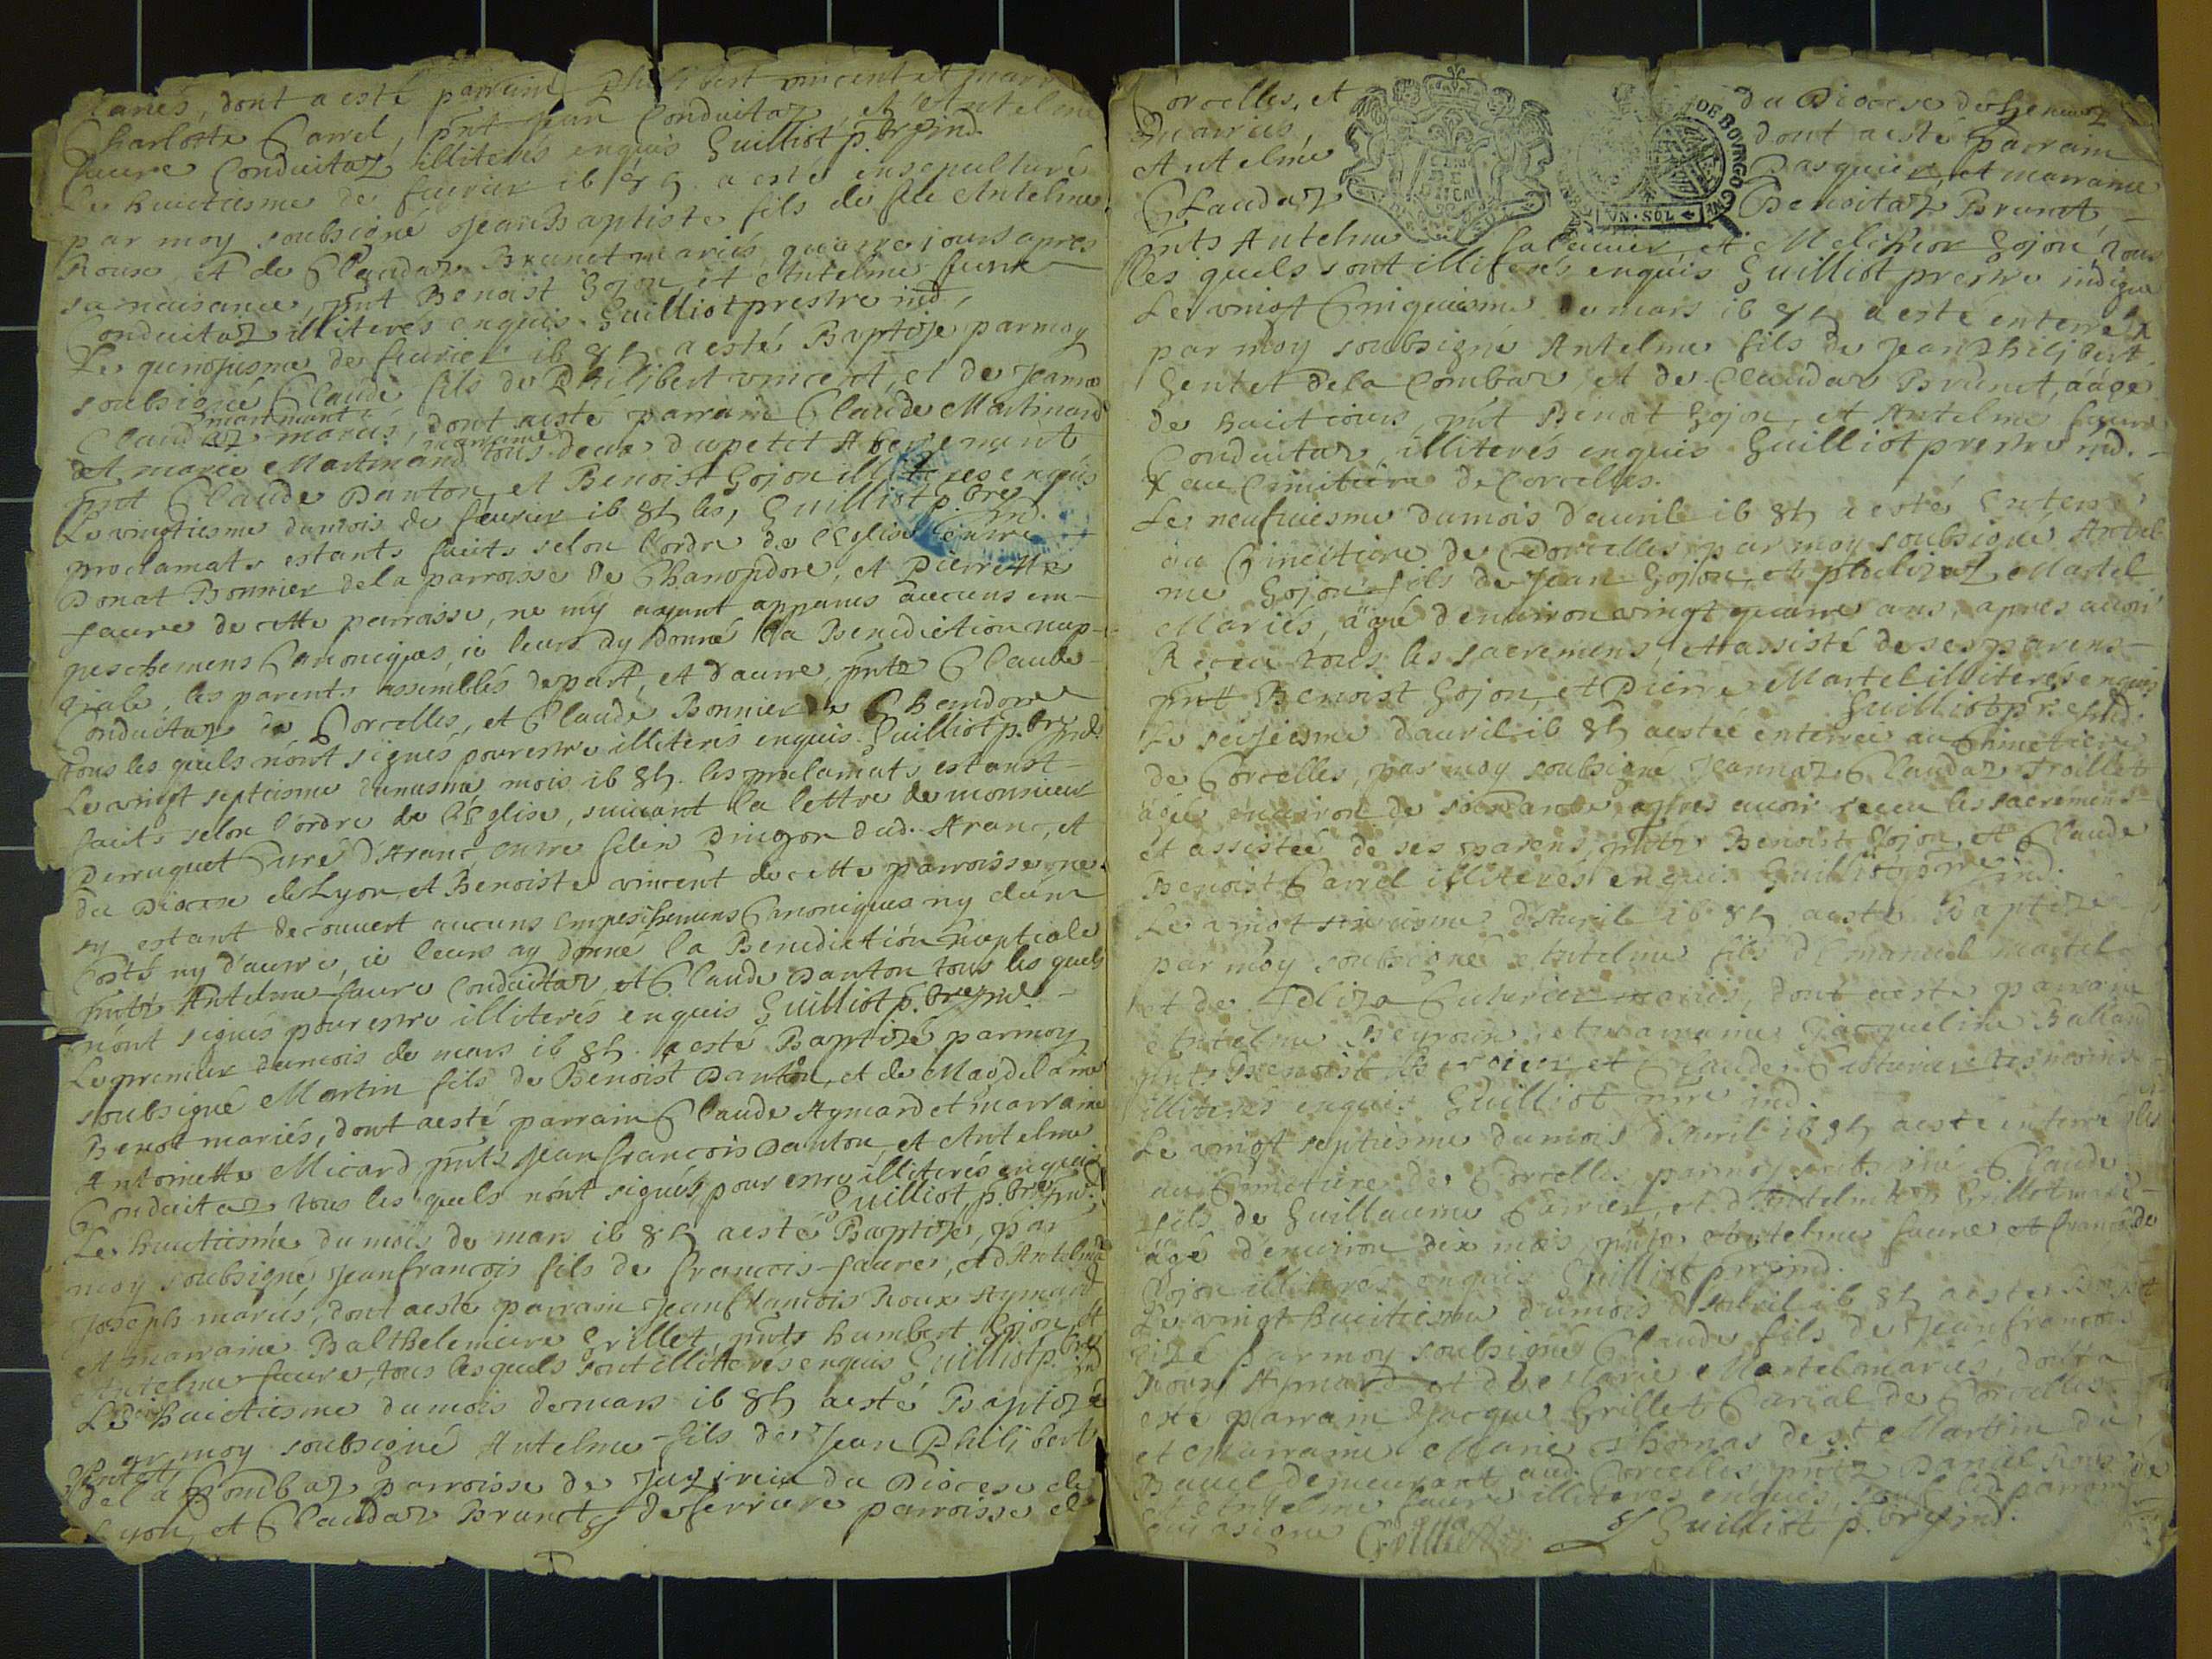 mariés, dont a esté parrain Philibert vincent et marr
Charlotte Carrel, pnt Jean Conduitaz, et Antelme
faure Conduitaz illiterés enquis Guilliot p.bre ind.
Le huictiesme de feurier 16 85 a esté ensepulturé
par moy soubsigné Jean Baptiste fils de feu Antelme
Roux et de Claudaz Brunet mariés quatre jours apres
sa naisance, pnt Benoist Gojon, et Antelme faure
Conduitaz illiterés enquis Guilliot prestre ind.
Le quinsiesme de feurier 16 85 a esté Baptisé par moy
soubsigné Claude fils de Philibert vincent, et de Jeanne
Claudaz mariés, dont a esté parrain Claude Martinand
et marie Martinand marraine tous deux du petit Abergement
pnt Claude Danton, et Benoist Gojon illiterés enquis
Le vingtiesme du mois de feurier 16 85 les, Guilliot p.bre ind.
proclamats estants faits selon l'ordre de l'Eglise entre
Donat Bonnier de la parroisse de Champdore, et Pierrette
faure de cette parroisse, ne m'y ayant apparus aucuns em-
peschemens Canoniques, ie leurs ay donné la Benediction nup-
tiale, les parents assemblés de part, et d'autre, pnts Claude
Conduitaz de Corcelles, et Claude Bonnier de Chandore
tous les quels n'ont signés pour estre illiterés enquis. Guilliot p.bre ind.
Le vingt septiesme du mesme mois 16 85. les proclamats estants
faits selon l'ordre de l'Eglise, suiuant la lettre de monsieur
Perruquet Curé d'Aranc, entre felix Dingon dud. Aranc, et
du Diocese de Lyon, et Benoiste vincent de cette parroisse ne
sy estant decouvert aucuns empeschemens Canoniques ny d'une
costé ny d'autre, ie leurs ay donné la Benediction nuptiale
pnts Antelme faure Conduitaz, et Claude Danton tous les quels
n'ont signés pour estre illiterés enquis Guilliot p.bre ind.
Le premier du mois de mars 16 85. a esté Baptizé par moy
soubsigné Martin fils de Benoist Danton, et de Magdelaine
Benot mariés, dont a esté parrain Claude Aymard et marraine
Antoinette Micard, pnts Jean francois Danton, et Antelme
Conduitaz tous les quels n'ont signés, pour estre illiterés enquis
Guilliot, p.bre ind.
Le huictiesme du mois de mars 16 85 a esté Baptizé, par
moy soubsigné Jean françois fils de francois faure, et d'Antelma
Joseph mariés, dont a esté parrain Jean francois Roux Aymard,
et marraine Balthelemiere Grillet pnts humbert Gojon, et
Antelme faure, tous lesquels sont illiterés enquis Guilliot p.bre ind
Le huictiesme du mois de mars 16 85 a esté Baptizé
par moy soubsigné Antelme fils de Jean Philibert
Gentet
de la Combaz parroisse de du Diocese de
Lyon, et Claudaz Brunet de ferriere parroisse de
Corcelles, et du Diocese de Geneue
mariés, dont a esté parrain
Antelme Pasquier, et marraine
Claudaz Benoitaz Brunet
DE BOVRGOGNE
VN·SOL
pnts Antelme et Melchior Gojon, tous
les quels sont illiterés enquis Guilliot prestre indigne
Le vingt Cinquiesme de mars 16 85 a esté enterré x
par moy soubsigné Antelme fils de Jean Philibert
Gentet de la Combaz, et de Claudaz Brunet, aagé
de huict iours, pnt Benoit Gojon, et Antelme faure
Conduitaz, illiterés enquis Guilliot prestre ind.
x au Cimitiere de Corcelles.
Le neufuiesme du mois d'auril 16 85 a esté Enterré
au Cimitiere de Corcelles par moy soubsigné Antel
me Gojon fils de Jean Gojon, et Martel
Mariés, agé d'enuiron vingt quatre ans, apres auoir
Receu tous les sacremens, et assisté de ses parens
pnt Benoist Gojon, et Pierre Martel illiterés enquis
Guilliot pr.e ind.
Le seiziesme d'auril 16 85 a estée enterrée au Chimetiere
de Corcelles, par moy soubsigné Jeannaz Claudaz Troillet
agée enuiron de soixante apres auoir receu les sacremens
et assistée de ses parens, pnts Benoist Gojon, et Claude
Benoist Carrel illiterés enquis Guilliot p.re ind.
Le vingt d'Auril 16 85 a esté Baptizé
par moy soubsigné Antelme fils d'Emanuel martel
et de Cuturier mariés, dont a esté parrain
Antelme Beyroux, et marraine Jacqueline Balland
pnts Benoist et Claude Cuturier tesmoins
illiterés enquis Guilliot p.re ind.
Le vingt septiesme du mois d'Auril 16 85 a esté enterré
au Cimetiere de Corcelles par moy soubsigné Claude
fils de Guillaume Carrier, et d'Antelme Grillet mariés
agé d'enuiron dix mois, pnts Antelme faure et francois
Gojon illiterés enquis Guilliot p.re ind.
Le vingt huictiesme du mois d'Auril 16 85 a esté Bapt
tizé par moy soubsigné Claude fils de Jean francois
Roux Aymard et de Marie Martel mariés, dont a
esté parrain Jacque Grillet Carial de Corcelles
et Marraine Marie Thomas de st Martin du
demeurant aud. Corcelles, pnts Daniel Roux
et Antelme faure illiterés enquis, sauf led. parrain
qui a signé Guilliot p.bre ind.